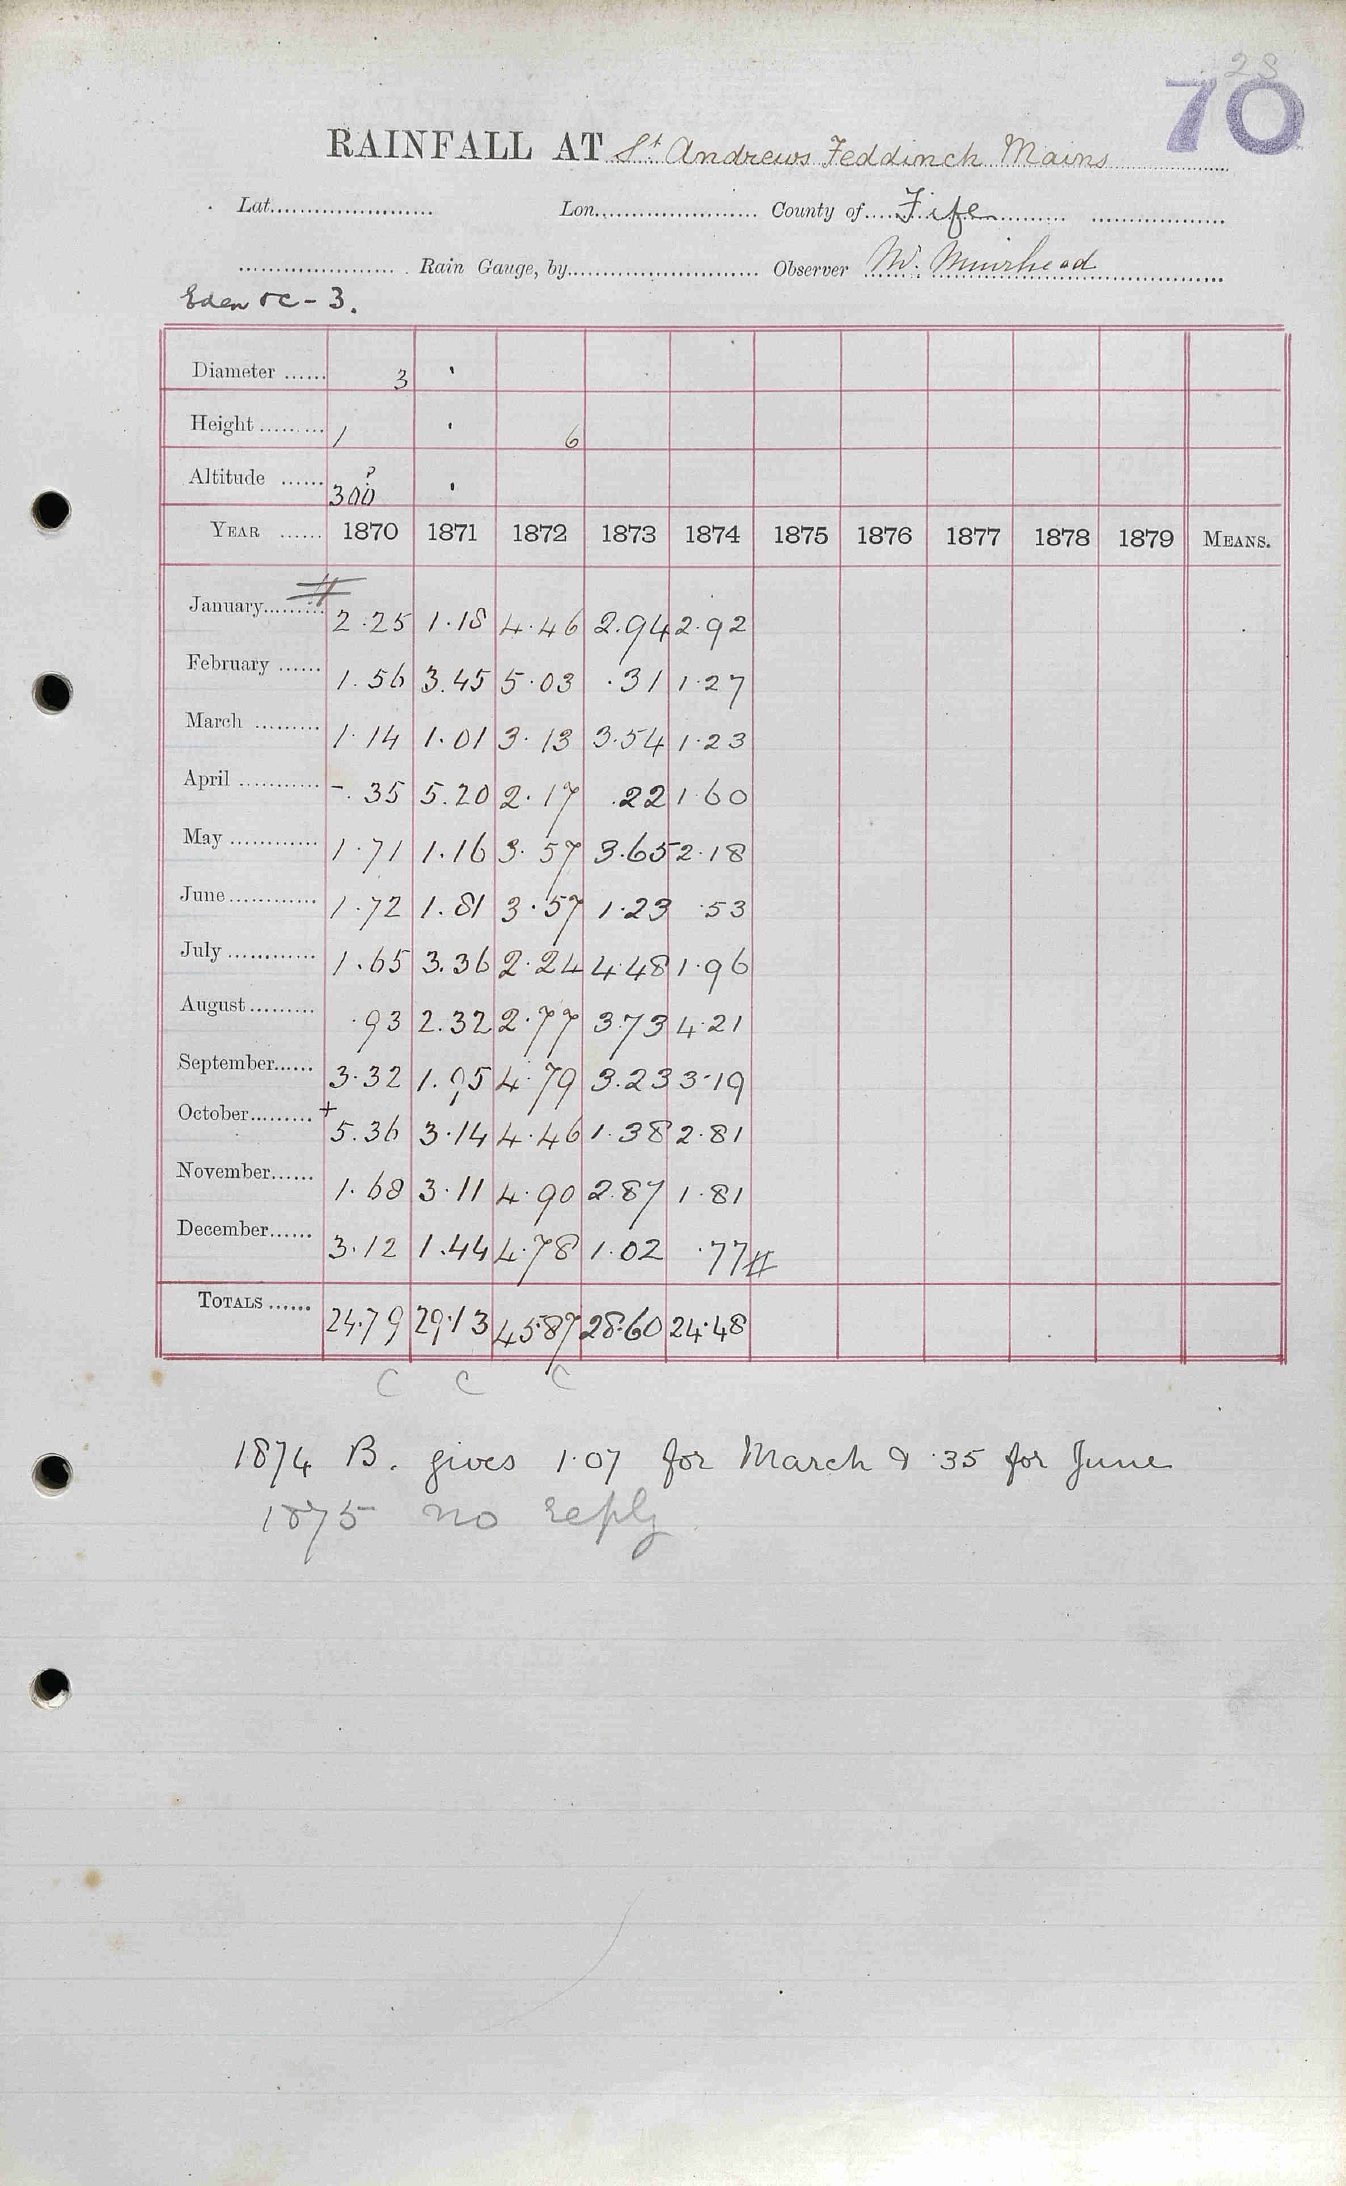 28
70
RAINFALL AT St Andrews Feddinch Mains
Lat. Lon. County of Fife
Rain Gauge, by Observer W. Muirhead
Eden &c - 3.
Diameter 3 '
Height 1 ' 6
Altitude 300 ? '
YEAR 1870 1871 1872 1873 1874 1875 1876 1877 1878 1879 MEANS.
January 2.25 1.18 4.46 2.94 2.92
February 1.56 3.45 5.03 .31 1.27
March 1.14 1.01 3.13 3.54 1.23
April -.35 5.20 2.17 .22 1.60
May 1.71 1.16 3.57 3.65 2.18
June 1.72 1.81 3.57 1.23 .53
July 1.65 3.36 2.24 4.48 1.96
August .93 2.32 2.77 3.73 4.21
September 3.32 1.95 4.79 3.23 3.19
October + 5.36 3.14 4.46 1.38 2.81
November 1.68 3.11 4.90 2.87 1.81
December 3.12 1.44 4.78 1.02 .77
TOTALS 24.79 29.13 45.87 28.60 24.48
C C C
1874 B. gives 1.07 for March & .35 for June
1875 no reply